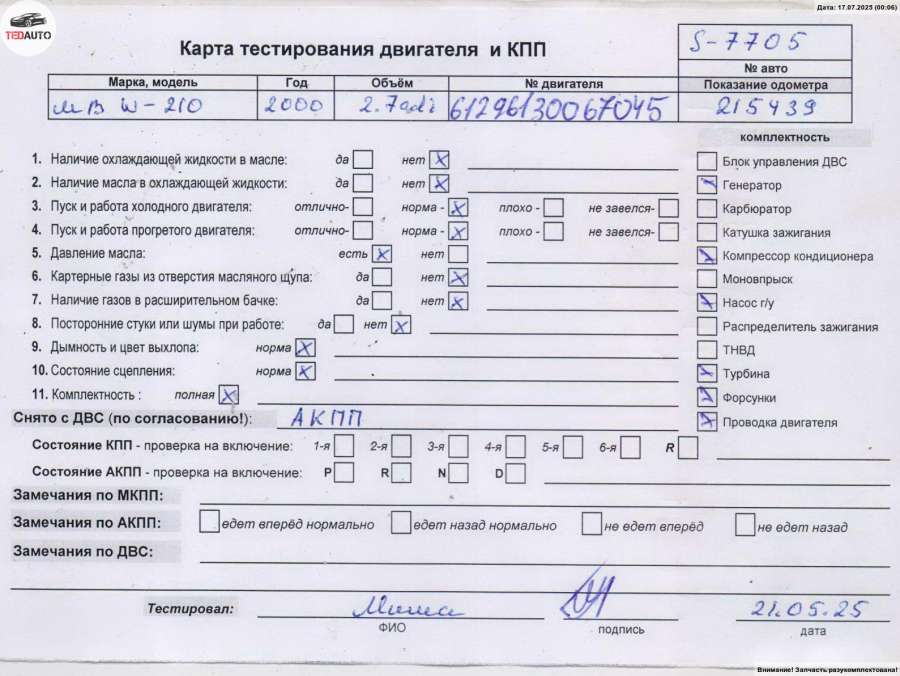 Дата: 17.07.2025 (00:06)
TEDAUTO
Карта тестирования двигателя и КПП
S-7705
№ авто
Марка, модель Год Объём № двигателя Показание одометра
МВ W-210 2000 2.7cdi 61296130067045 215439
комплектность
1. Наличие охлаждающей жидкости в масле: да нет X
Блок управления ДВС
2. Наличие масла в охлаждающей жидкости: да нет X
Генератор
3. Пуск и работа холодного двигателя: отлично- норма - X плохо - не завелся-
Карбюратор
4. Пуск и работа прогретого двигателя: отлично- норма - X плохо - не завелся-
Катушка зажигания
5. Давление масла: есть X нет
Компрессор кондиционера
6. Картерные газы из отверстия масляного щупа: да нет X
Моновпрыск
7. Наличие газов в расширительном бачке: да нет X
Насос г/у
8. Посторонние стуки или шумы при работе: да нет X
Распределитель зажигания
9. Дымность и цвет выхлопа: норма X
ТНВД
10. Состояние сцепления: норма X
Турбина
11. Комплектность : полная X
Форсунки
Снято с ДВС (по согласованию!): АКПП
Проводка двигателя
Состояние КПП - проверка на включение: 1-я 2-я 3-я 4-я 5-я 6-я R
Состояние АКПП - проверка на включение: P R N D
Замечания по МКПП:
Замечания по АКПП: едет вперёд нормально едет назад нормально не едет вперёд не едет назад
Замечания по ДВС:
Тестировал: Миша 21.05.25
ФИО подпись дата
Внимание! Запчасть разукомплектована!